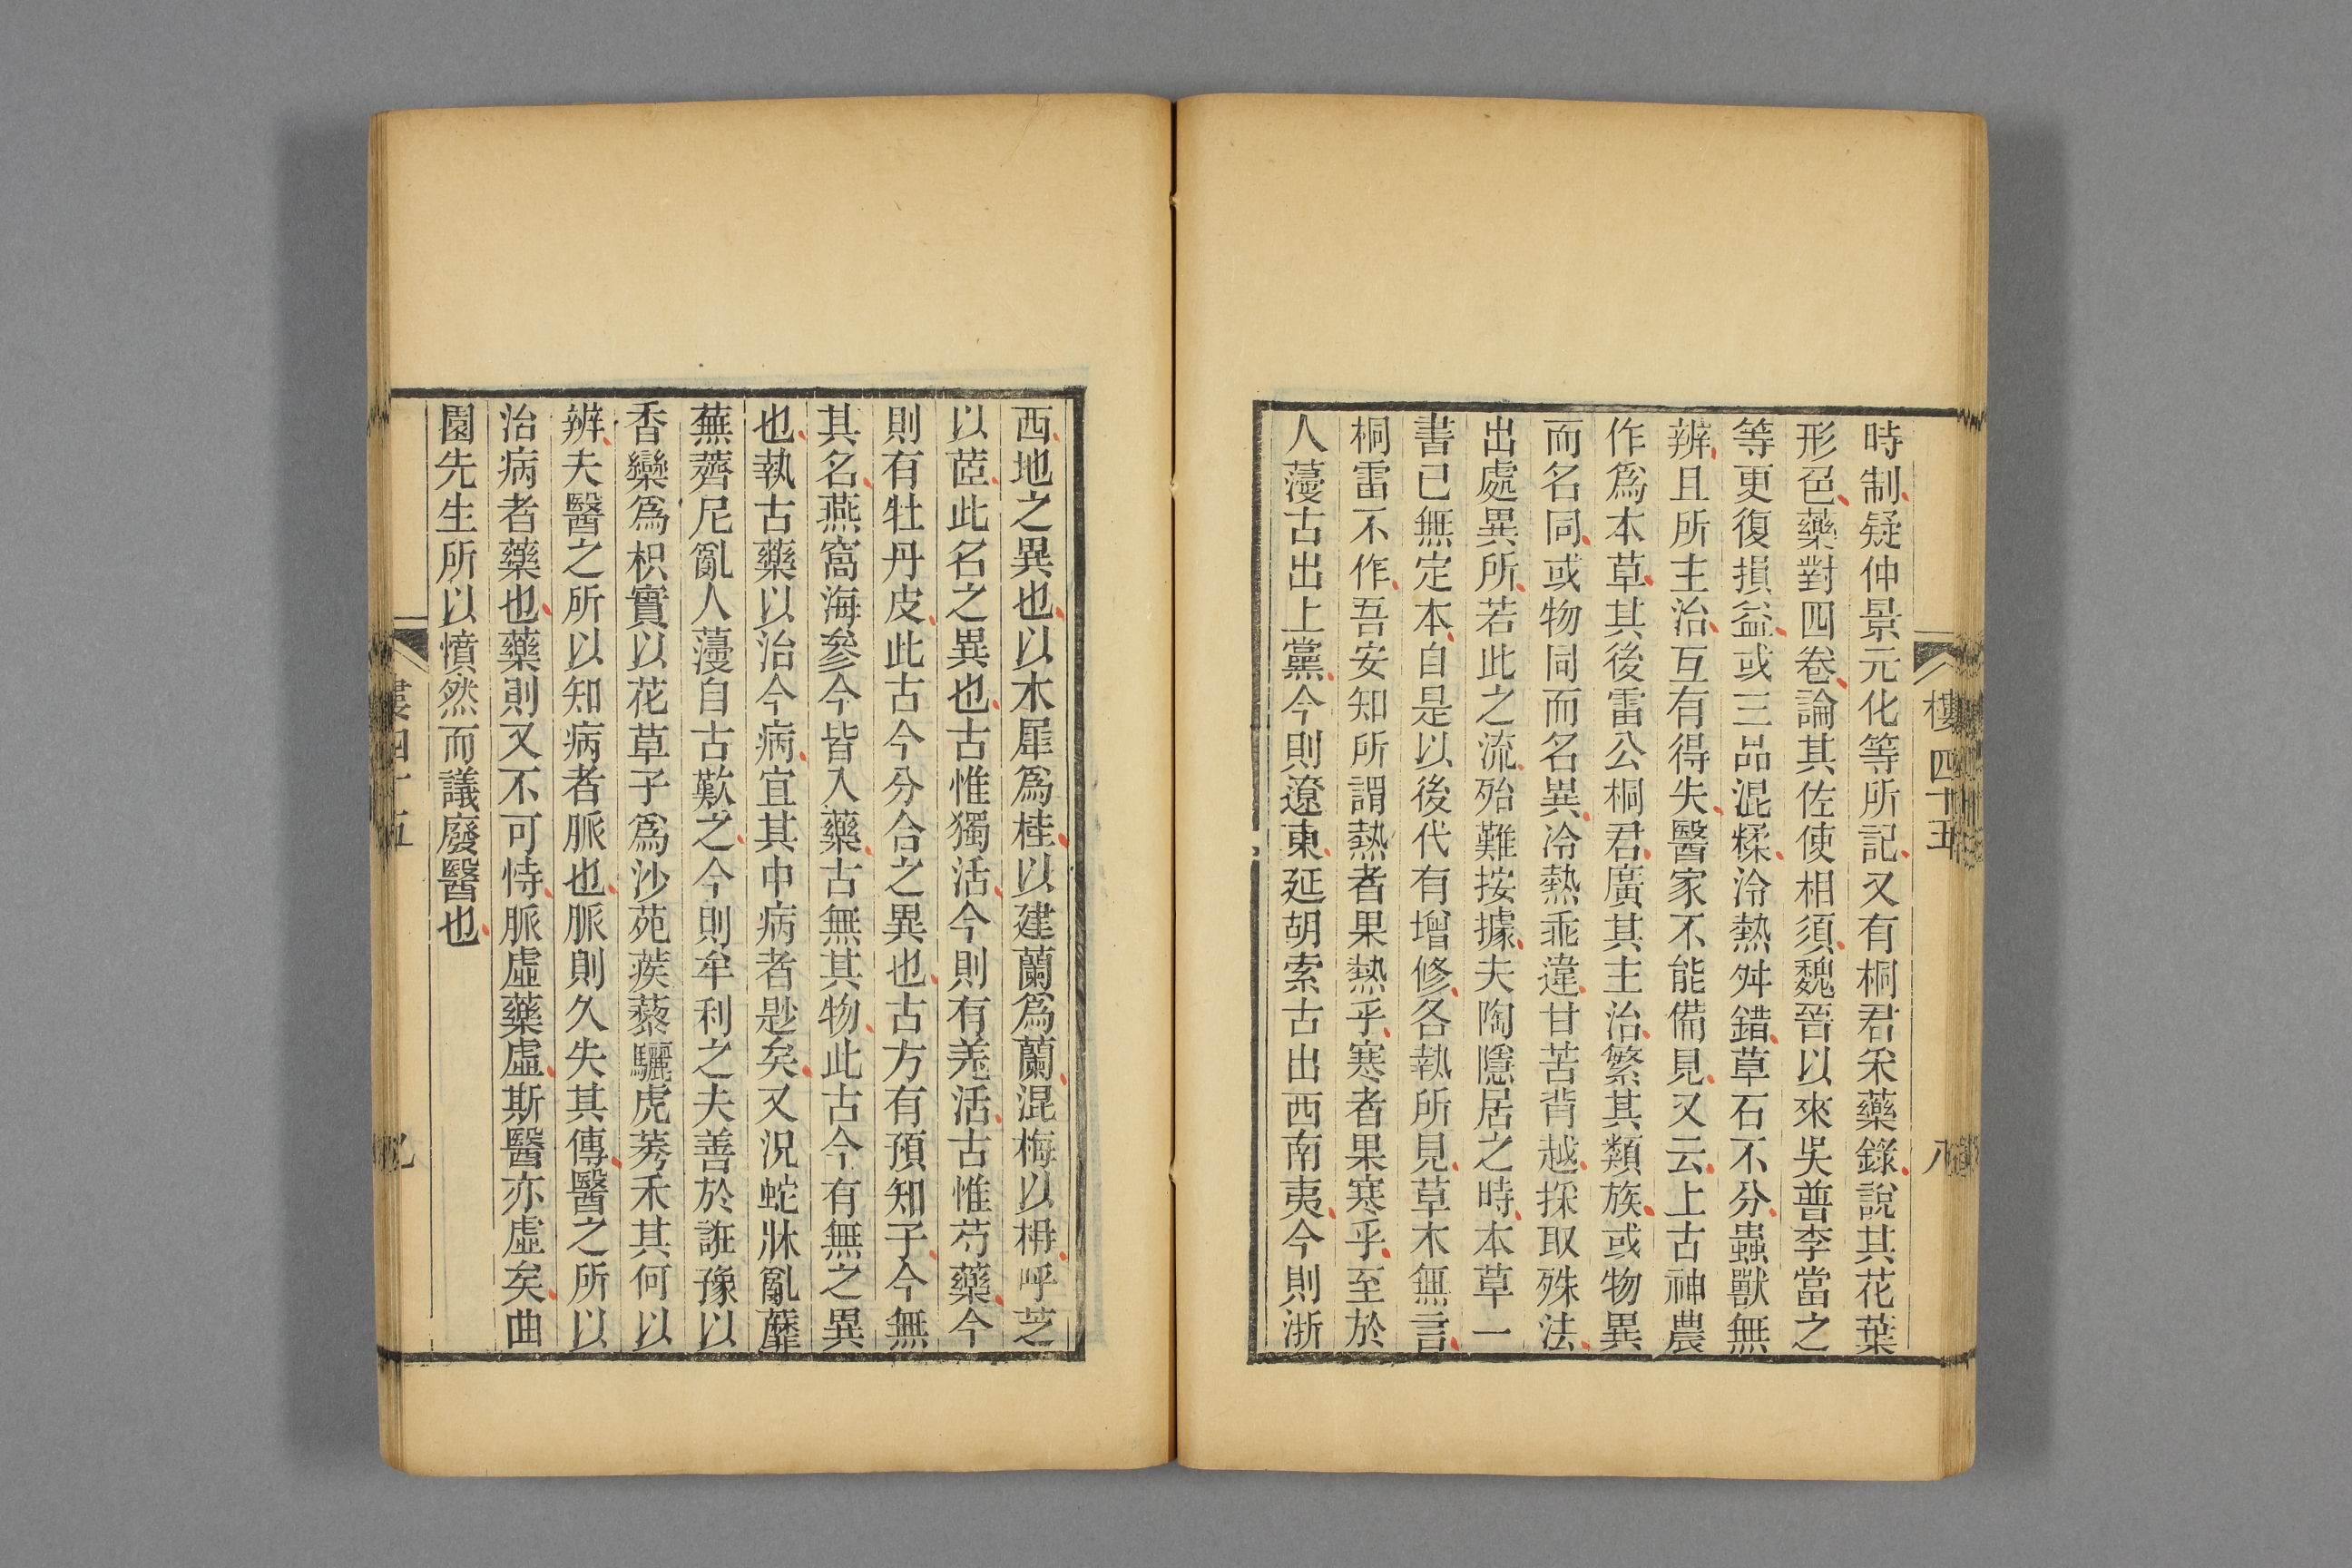 樓四十五
八
時制疑仲景元化等所記又有桐君采藥錄說其花葉
形色藥對四卷論其佐使相須魏晉以來吳普李當之
等更復損益或三品混糅冷熱舛錯草石不分蟲獸無
辨且所主治互有得失醫家不能備見又云上古神農
作爲本草其後雷公桐君廣其主治繁其類族或物異
而名同或物同而名異冷熱乖違甘苦背越採取殊法
出處異所若此之流殆難按據夫陶隱居之時本草一
書已無定本自是以後代有增修各執所見草木無言
桐雷不作吾安知所謂熱者果熱乎寒者果寒乎至於
人薓古出上黨今則遼東延胡索古出西南夷今則浙
西地之異也以木犀爲桂以建蘭爲蘭混梅以枏呼芝
以茝此名之異也古惟獨活今則有羌活古惟芍藥今
則有牡丹皮此古今分合之異也古方有預知子今無
其名燕窩海參今皆入藥古無其物此古今有無之異
也執古藥以治今病宜其中病者尟矣又況蛇牀亂蘼
蕪薺尼亂人薓自古歎之今則牟利之夫善於誑豫以
香欒爲枳實以花草子爲沙苑蒺藜驪虎莠禾其何以
辨夫醫之所以知病者脈也脈則久失其傳醫之所以
治病者藥也藥則又不可恃脈虛藥虛斯醫亦虛矣曲
園先生所以憤然而議廢醫也